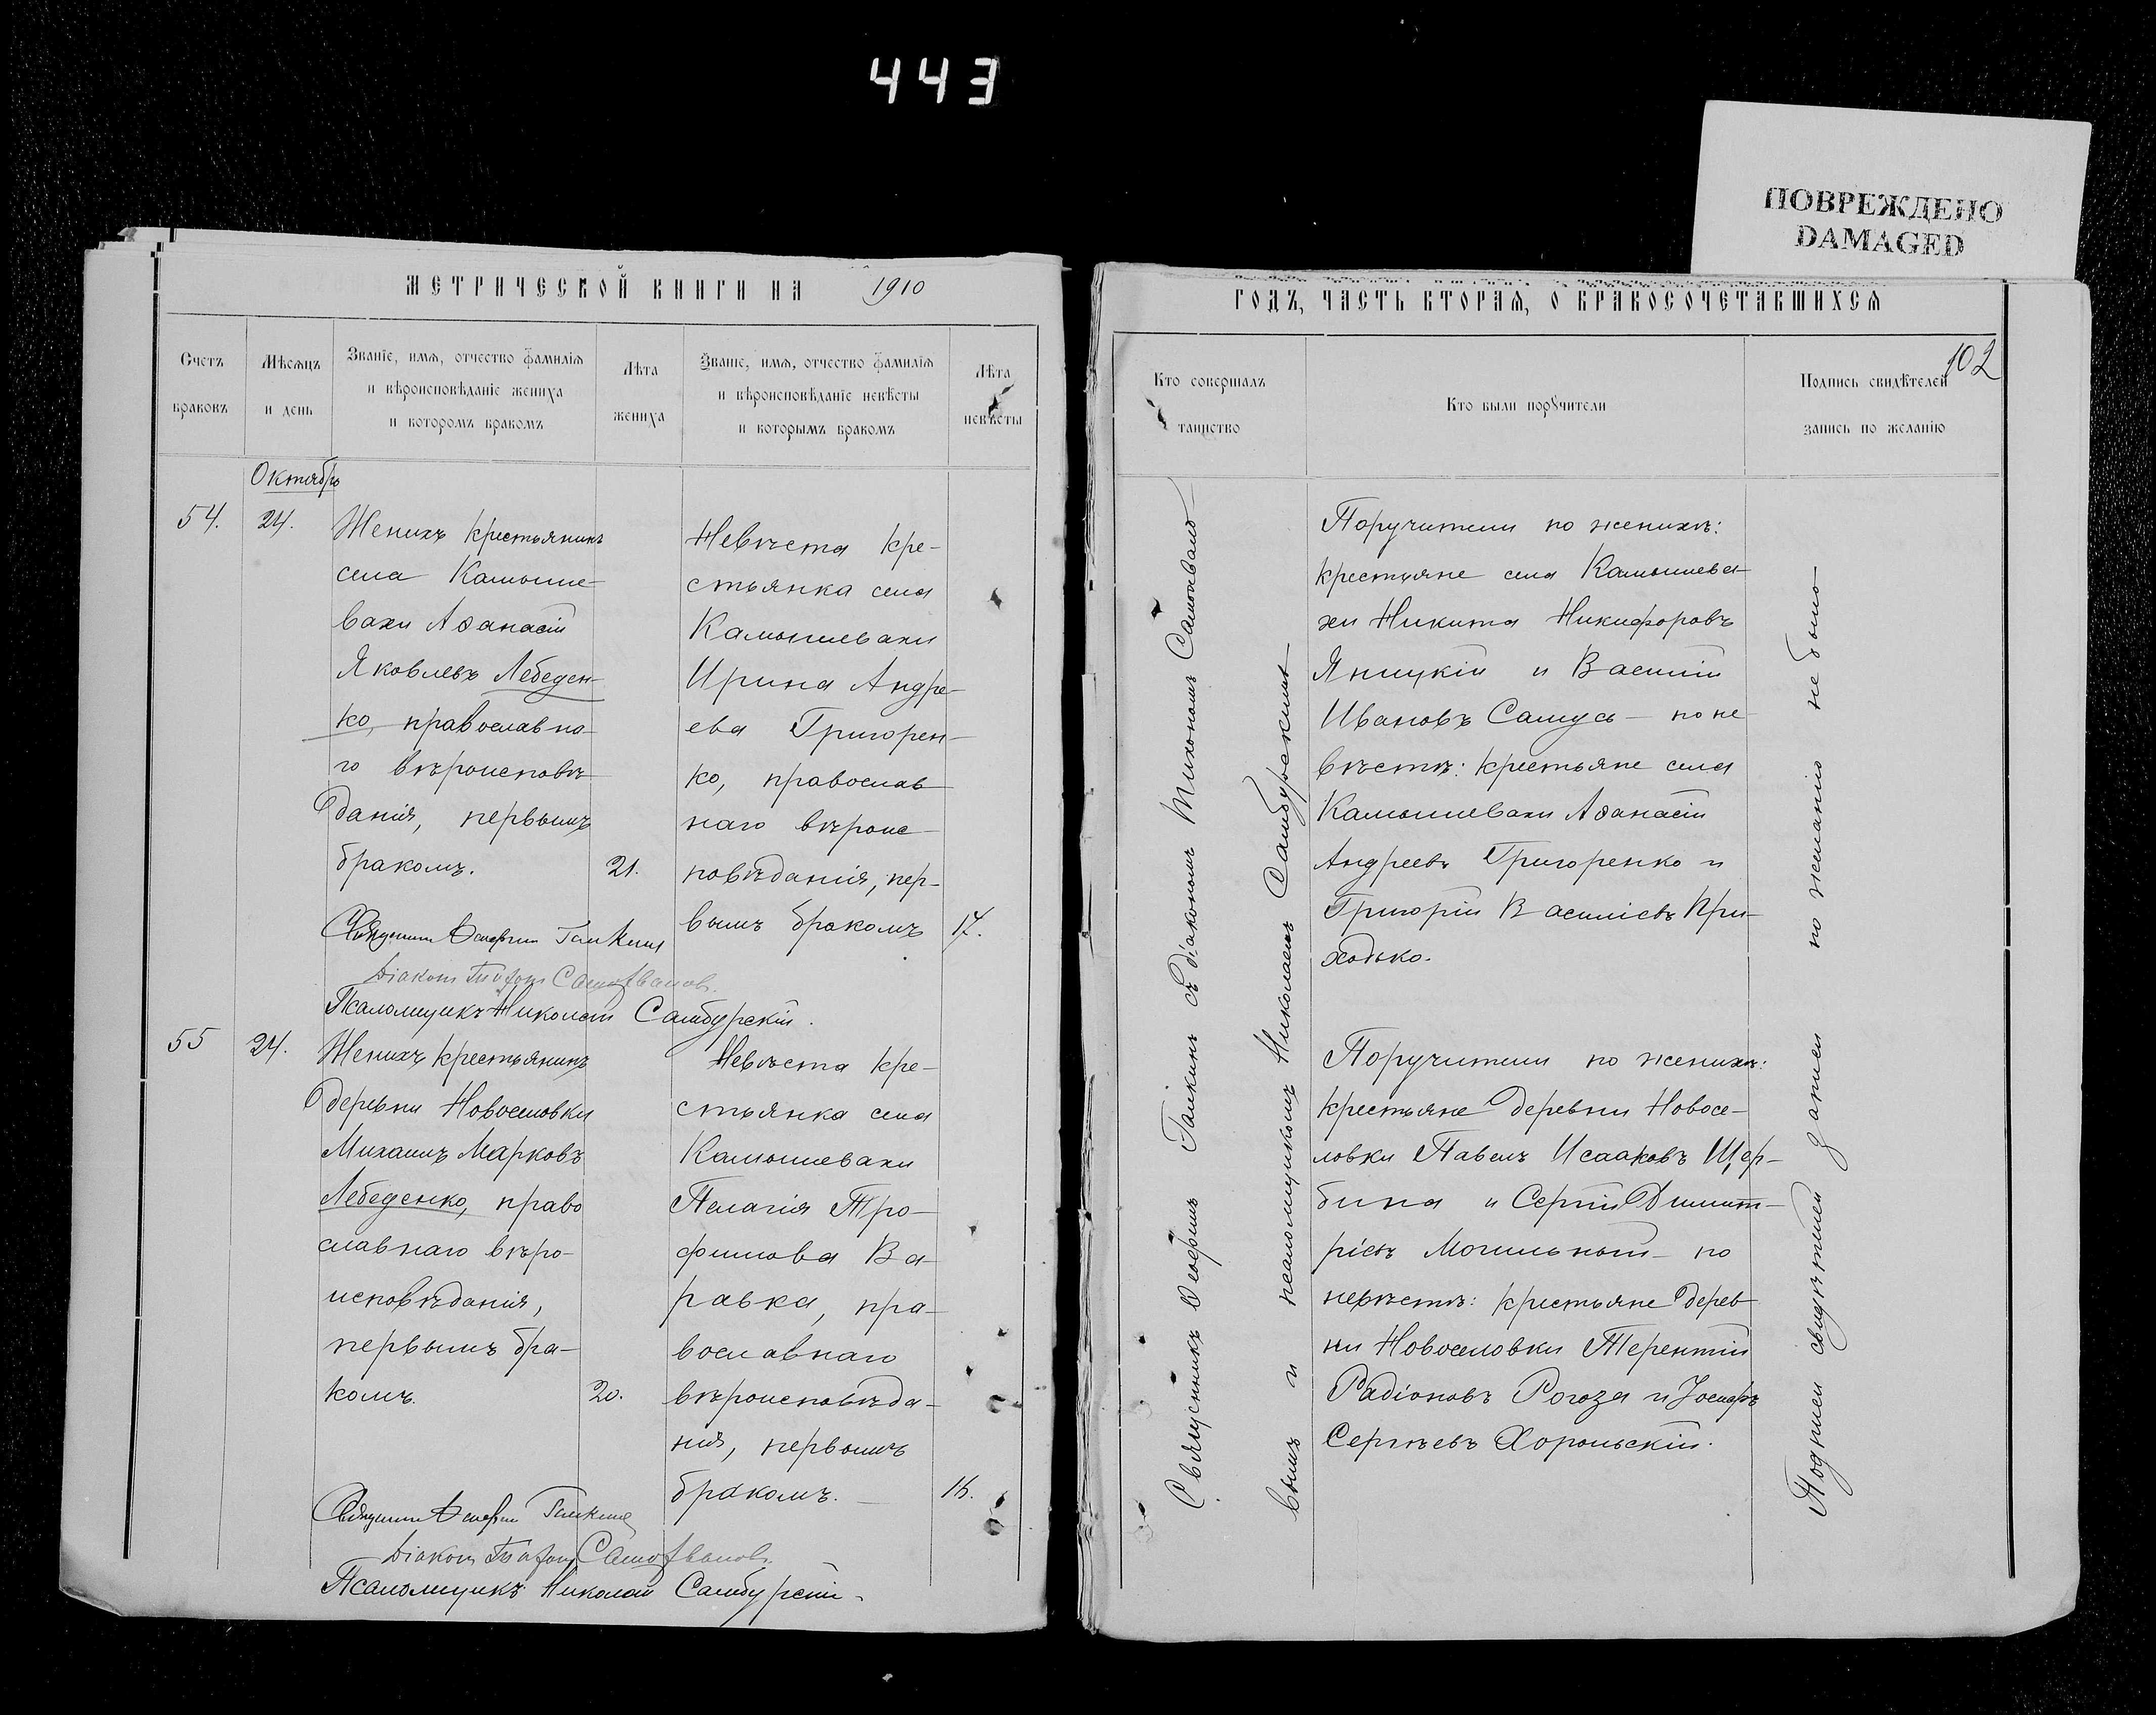 443
ПОВРЕЖДЕНО
DAMAGED
МЕТРИЧЕСКОЙ КНИГИ НА 1910
Счетъ
браковъ
Мѣсяцъ
и день
Званіе, имя, отчество фамилія
и вѣроисповѣданіе жениха
и которомъ бракомъ
Лѣта
жениха
Званіе, имя, отчество фамилія
и вѣроисповѣданіе невѣсты
и которымъ бракомъ
Лѣта
невѣсты
Октябрь
54.
24.
Женихъ крестьянинъ
села Камыше-
вахи Аѳанасій
Яковлевъ Лебеден-
ко, православна-
го вѣроисповѣ-
данія, первымъ
бракомъ.
21.
Невѣста кре-
стьянка села
Камышевахи
Ирина Андре-
ева Григорен-
ко, православ-
наго вѣроис-
повѣданія, пер-
вымъ бракомъ
17.
Священникъ Галкинъ
Діаконъ Тихонъ Самойвановъ.
Псаломщикъ Николай Самбурскій.
55
24.
Женихъ крестьянинъ
деревни Новоселовки
Михаилъ Марковъ
Лебеденко, право
славнаго вѣро-
исповѣданія,
первымъ бра-
комъ.
20.
Невѣста кре-
стьянка села
Камышевахи
Пелагія Тро-
фимова Ва-
равка, пра-
вославнаго
вѣроисповѣда-
нія, первымъ
бракомъ.
Священникъ Галкинъ
Діаконъ Тихонъ Самойвановъ.
Псаломщикъ Николай Самбурскій.
ГОДЪ, ЧАСТЬ ВТОРАЯ, О БРАКОСОЧЕТАВШИХСЯ
102
Кто совершалъ
таинство
Кто были поручители
Подпись свидѣтелей
запись по желанію
Священникъ Галкинъ съ діакономъ Тихономъ Самойвано-
вымъ и псаломщикомъ Николаемъ Самбурскимъ
Поручители по женихѣ:
крестьяне села Камышева-
хи Никита Никифоровъ
Яницкій и Василій
Ивановъ Самусь – по не-
вѣстѣ: крестьяне села
Камышевахи Аѳанасій
Андреевъ Григоренко и
Григорій Василіевъ При-
ходько.
Поручители по женихѣ:
крестьяне деревни Новосе-
ловки Павелъ Исааковъ Щер-
бина и Сергій Димит-
ріевъ Могильный – по
невѣстѣ: крестьяне дерев-
ни Новоселовки Терентій
Радіоновъ Рогоза и Іосифъ
Сергѣевъ Хорольскій.
Подписи свидѣтелей записи по желанію не было